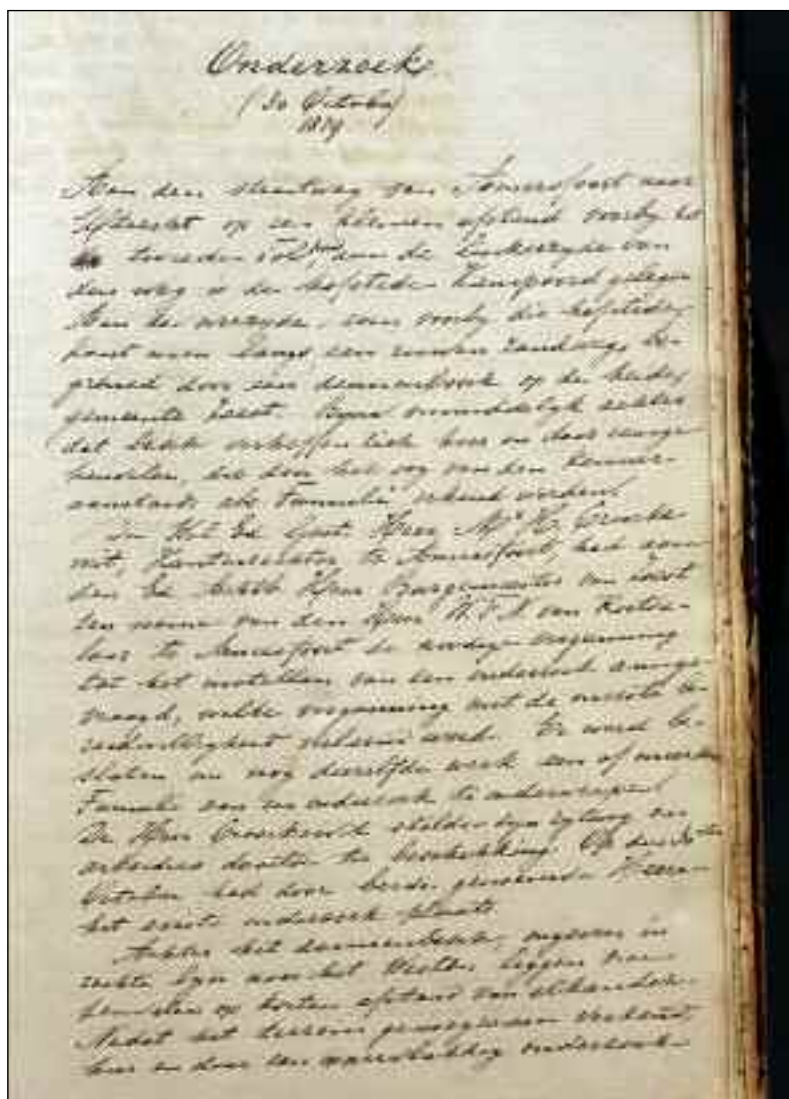 Onderzoek
(30 October)
1879
Aan den straatweg van Amersfoort naar
Utrecht op een kleinen afstand voorby het
tweeden tol, aan de linkerzyde van
den weg is de hofstede gelegen
Aan de overzyde, even voorby die hofstede,
komt men langs een zandweg, be-
grensd door een dennenbosch op de heide
gemeente Zeist. Byna onmiddelyk achter
dat bosch verheffen zich hier en daar eenige
heuvelen, die door het oog van den kenner
aanstonds als Tumuli erkend worden.
De Wel Ed. Gest. Heer Mr. H.
te Amersfoort, had aan
den Ed. Achtb. Heer Burgemeester van Zeist
ten name van den Heer van
te Amersfoort de noodige vergunning
tot het instellen van een onderzoek aange-
vraagd, welke vergunning met de meeste be-
reidwilligheid verleend werd. Er werd be-
sloten nu nog dezelfde week een of meerdere
Tumuli aan een onderzoek te onderwerpen.
De Heer stelde zyn rytuig en
arbeiders daartoe ter beschikking. Op den 30sten
October had door beide genoemde Heeren
het eerste onderzoek plaats.
Achter het dennenbosch, ongeveer in
rechte lyn naar het Westen, liggen drie
heuvelen op korten afstand van elkander.
Nadat het terrein genoegzaam verkend,
hier en daar een oppervlakkig onderzoek